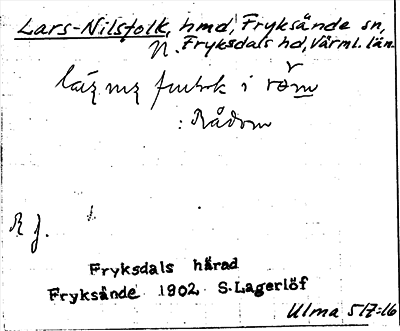 Lars-Nilsfolk, hmd, Fryksände sn,
N. Fryksdals hd, Värml. län.
i
: Rådom
R J.
Fryksdals härad
Fryksände 1902 S. Lagerlöf
Ulma 517:16